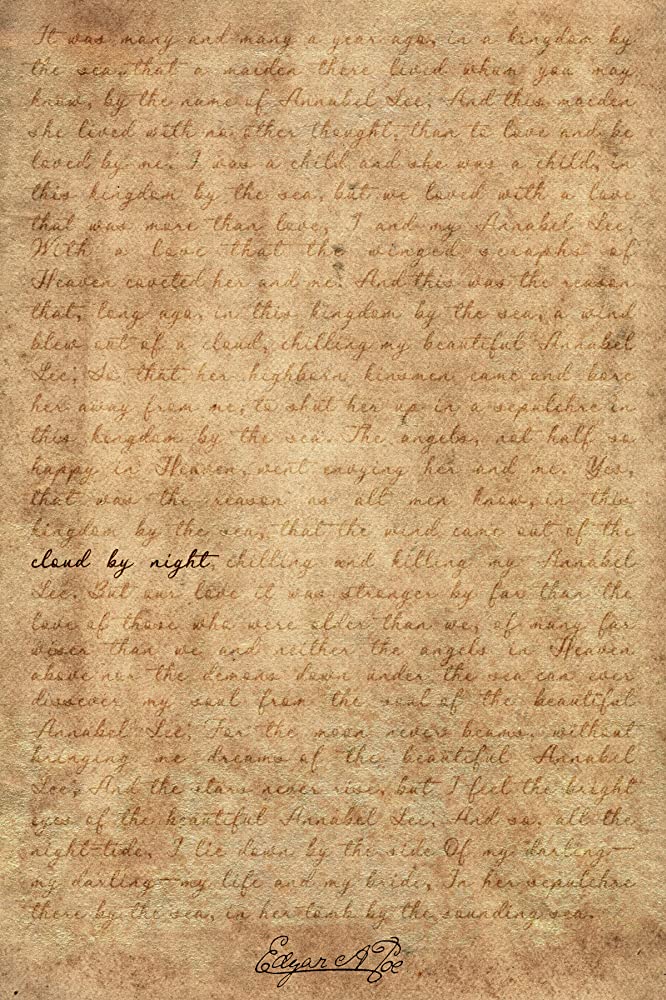 It was many and many a year ago, in a kingdom by
the sea, that a maiden there lived whom you may
know, by the name of Annabel Lee; And this maiden
she lived with no other thought, than to love and be
loved by me. I was a child and she was a child, in
this kingdom by the sea, but we loved with a love
that was more than love, I and my Annabel Lee;
With a love that the winged seraphs of
Heaven coveted her and me. And this was the reason
that, long ago, in this kingdom by the sea, a wind
blew out of a cloud, chilling my beautiful Annabel
Lee; So that her highborn kinsmen came and bore
her away from me, to shut her up in a sepulchre in
this kingdom by the sea. The angels, not half so
happy in Heaven, went envying her and me. Yes,
that was the reason as all men know, in this
kingdom by the sea, that the wind came out of the
cloud by night, chilling and killing my Annabel
Lee. But our love it was stronger by far than the
love of those who were older than we, of many far
wiser than we and neither the angels in Heaven
above nor the demons down under the sea can ever
dissever my soul from the soul of the beautiful
Annabel Lee; For the moon never beams, without
bringing me dreams of the beautiful Annabel
Lee; And the stars never rise, but I feel the bright
eyes of the beautiful Annabel Lee; And so, all the
night-tide, I lie down by the side Of my darling—
my darling—my life and my bride, In her sepulchre
there by the sea, in her tomb by the sounding sea.
Edgar A Poe